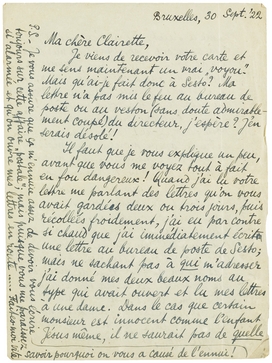 Bruxelles, 30 Sept. '22
Ma chère Clairette,
Je viens de recevoir votre carte et
me sens maintenant un vrai "voyou".
Mais qu'a-t-on fait donc à Sesto? Ma
lettre n'a pas mis le feu au bureau de
poste ou au veston (sans doute admirable-
ment coupé) du directeur, j'espère? J'en
serais désolé!
Il faut que je vous explique un peu,
avant que vous me voyez tout à fait
en fou dangereux! Quand j'ai eu votre
lettre me parlant des lettres qu'on vous
avait gardées deux ou trois jours, puis
recollées froidement, j'ai eu par contre
si chaud que j'ai immédiatement écrit
une lettre au bureau de poste de Sesto;
mais ne sachant pas à qui m'adresser
j'ai donné mes deux beaux noms au
type qui avait ouvert et lu mes lettres
à une dame. Dans le cas que certain
monsieur est innocent comme l'enfant
Jésus même, il ne saurait pas de quelle
savoir pourquoi on vous a causé de l'ennui
P.S. Je vous assure que ça m'ennuie assez de devoir vous écrire
toujours sur cette affaire "postale"; mais puisque vous me paraissez
si alarmée et qu'on ouvre mes lettres en route .... Faites-moi